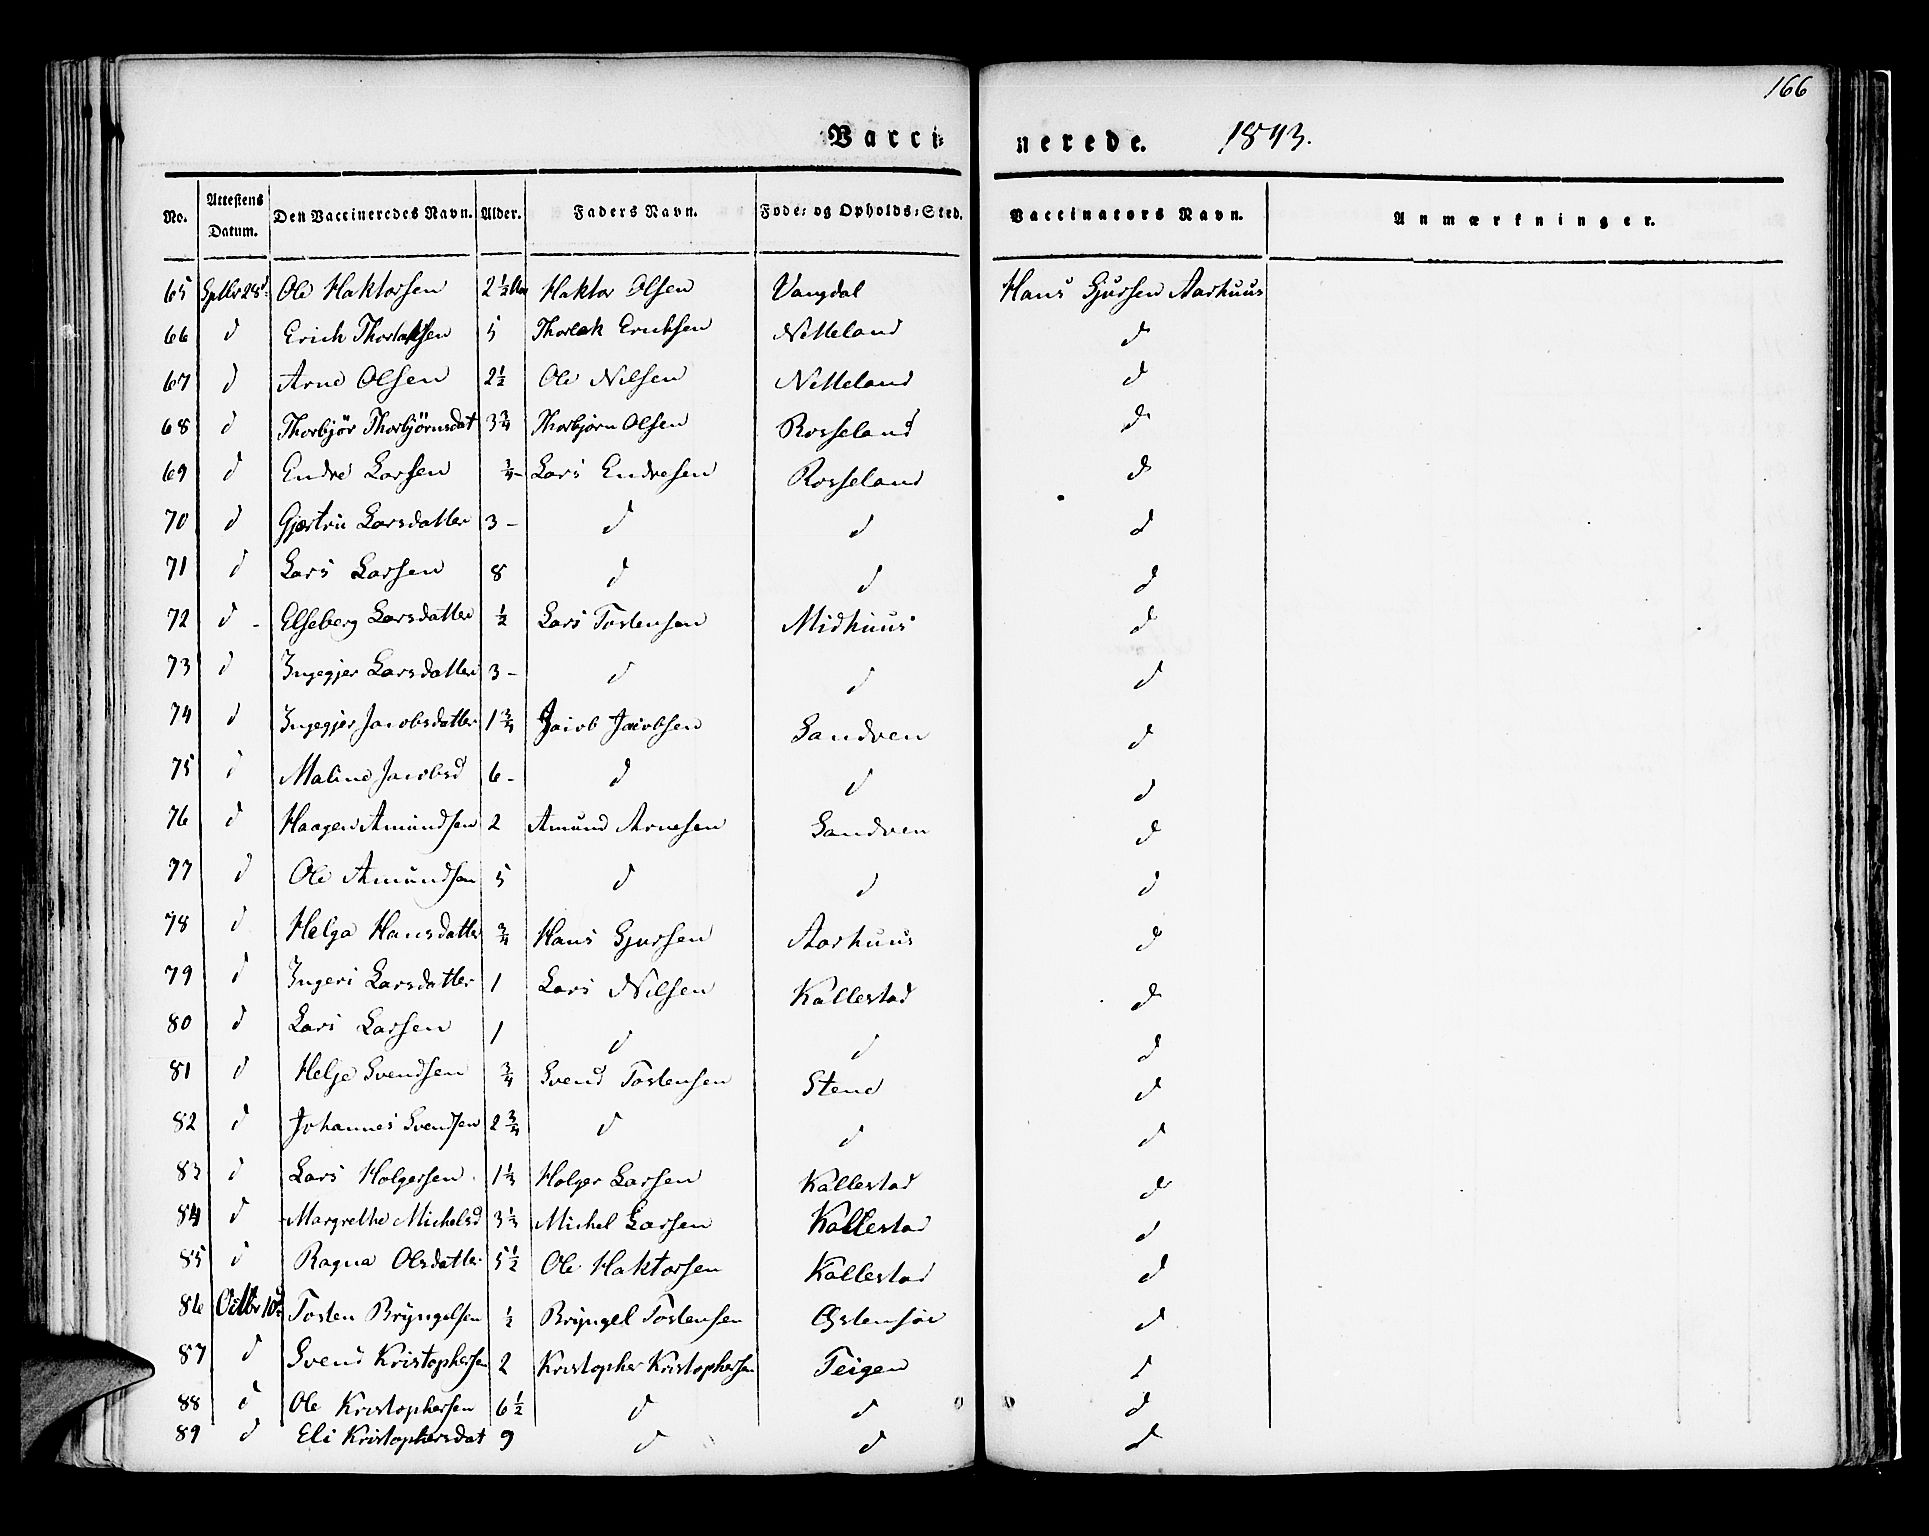 166
Vacci- nerede. 1843.
No. Attestens Datum. Den Vaccineredes Navn. Alder. Faders Navn. Føde- og Opholds-Sted. Vaccinators Navn. Anmærkninger.
65 Sptbr 28d Ole Haktorsen 2 1/2 Haktor Olsen Vangdal Hans Gjursen Aarhuus
66 d Erich Thorlaksen 5 Thorlak Eriksen Netteland d
67 d Arne Olsen 2 1/2 Ole Nilsen Netteland d
68 d Thorbjør Thorbjørnsdat 3 3/4 Thorbjørn Olsen Rosseland d
69 d Endre Larsen 3/4 - Lars Endresen Rosseland d
70 d Gjøstrin Larsdatter 3 - d d d
71 d Lars Larsen 8 d d d
72 d - Elseberg Larsdatter 1/2 Lars Tostensen Midhuus d
73 d Ingegjer Larsdatter 3 - d d d
74 d Ingegjer Jacobsdatter 1 3/4 Jacob Jacobsen Sandven d
75 d Maline Jacobsd 6 - d d d
76 d Haagen Amundsen 2 Amund Arnesen Sandven d
77 d Ole Amundsen 5 d d d
78 d Helga Hansdatter 3/4 Hans Gjursen Aarhuus d
79 d Ingeri Larsdatter 1 Lars Nilsen Kallestad d
80 d Lars Larsen 1 d d d
81 d Helje Svendsen 3/4 Svend Tostensen Stene d
82 d Johannes Svendsen 2 3/4 d d d
83 d Lars Holgersen 1 1/3 Holger Larsen Kallestad d
84 d Margrethe Michelsd 3 1/3 Michel Larsen Kallestad d
85 d Ragna Olsdatter 5 1/2 Ole Haktorsen Kallestad d
86 Octbr 10d Tosten Bryngelsen 1/2 Bryngel Tostensen Østensøe d
87 d Svend Kristophersen 2 Kristopher Kristophersen Teigen d
88 d Ole Kristophersen 6 1/2 d d d
89 d Eli Kristophersdat 9 d d d